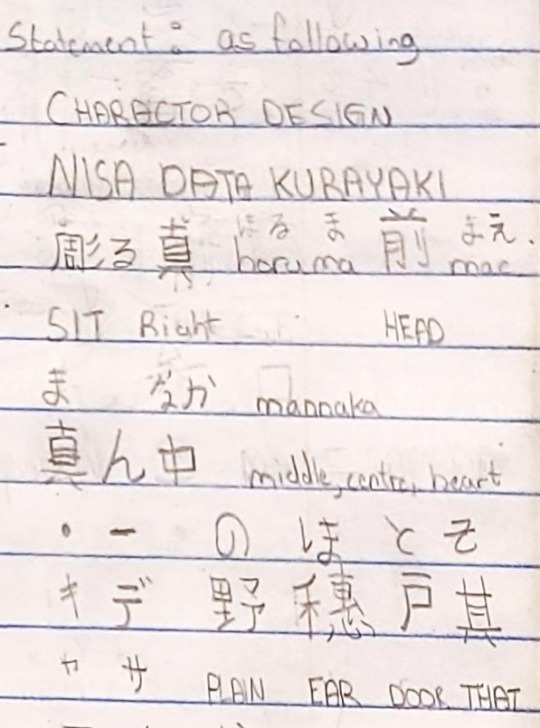 Statement: as following
CHARACTOR DESIGN
NISA DATA KURAYAKI
彫る真 ほるま horuma 前 まえ. mae
SIT Right HEAD
ま なか mannaka
真ん中 middle, centre, heart
・ ー の ほ と そ
キ デ 野 穂 戸 其
ヤ サ PLAIN EAR DOOR THAT